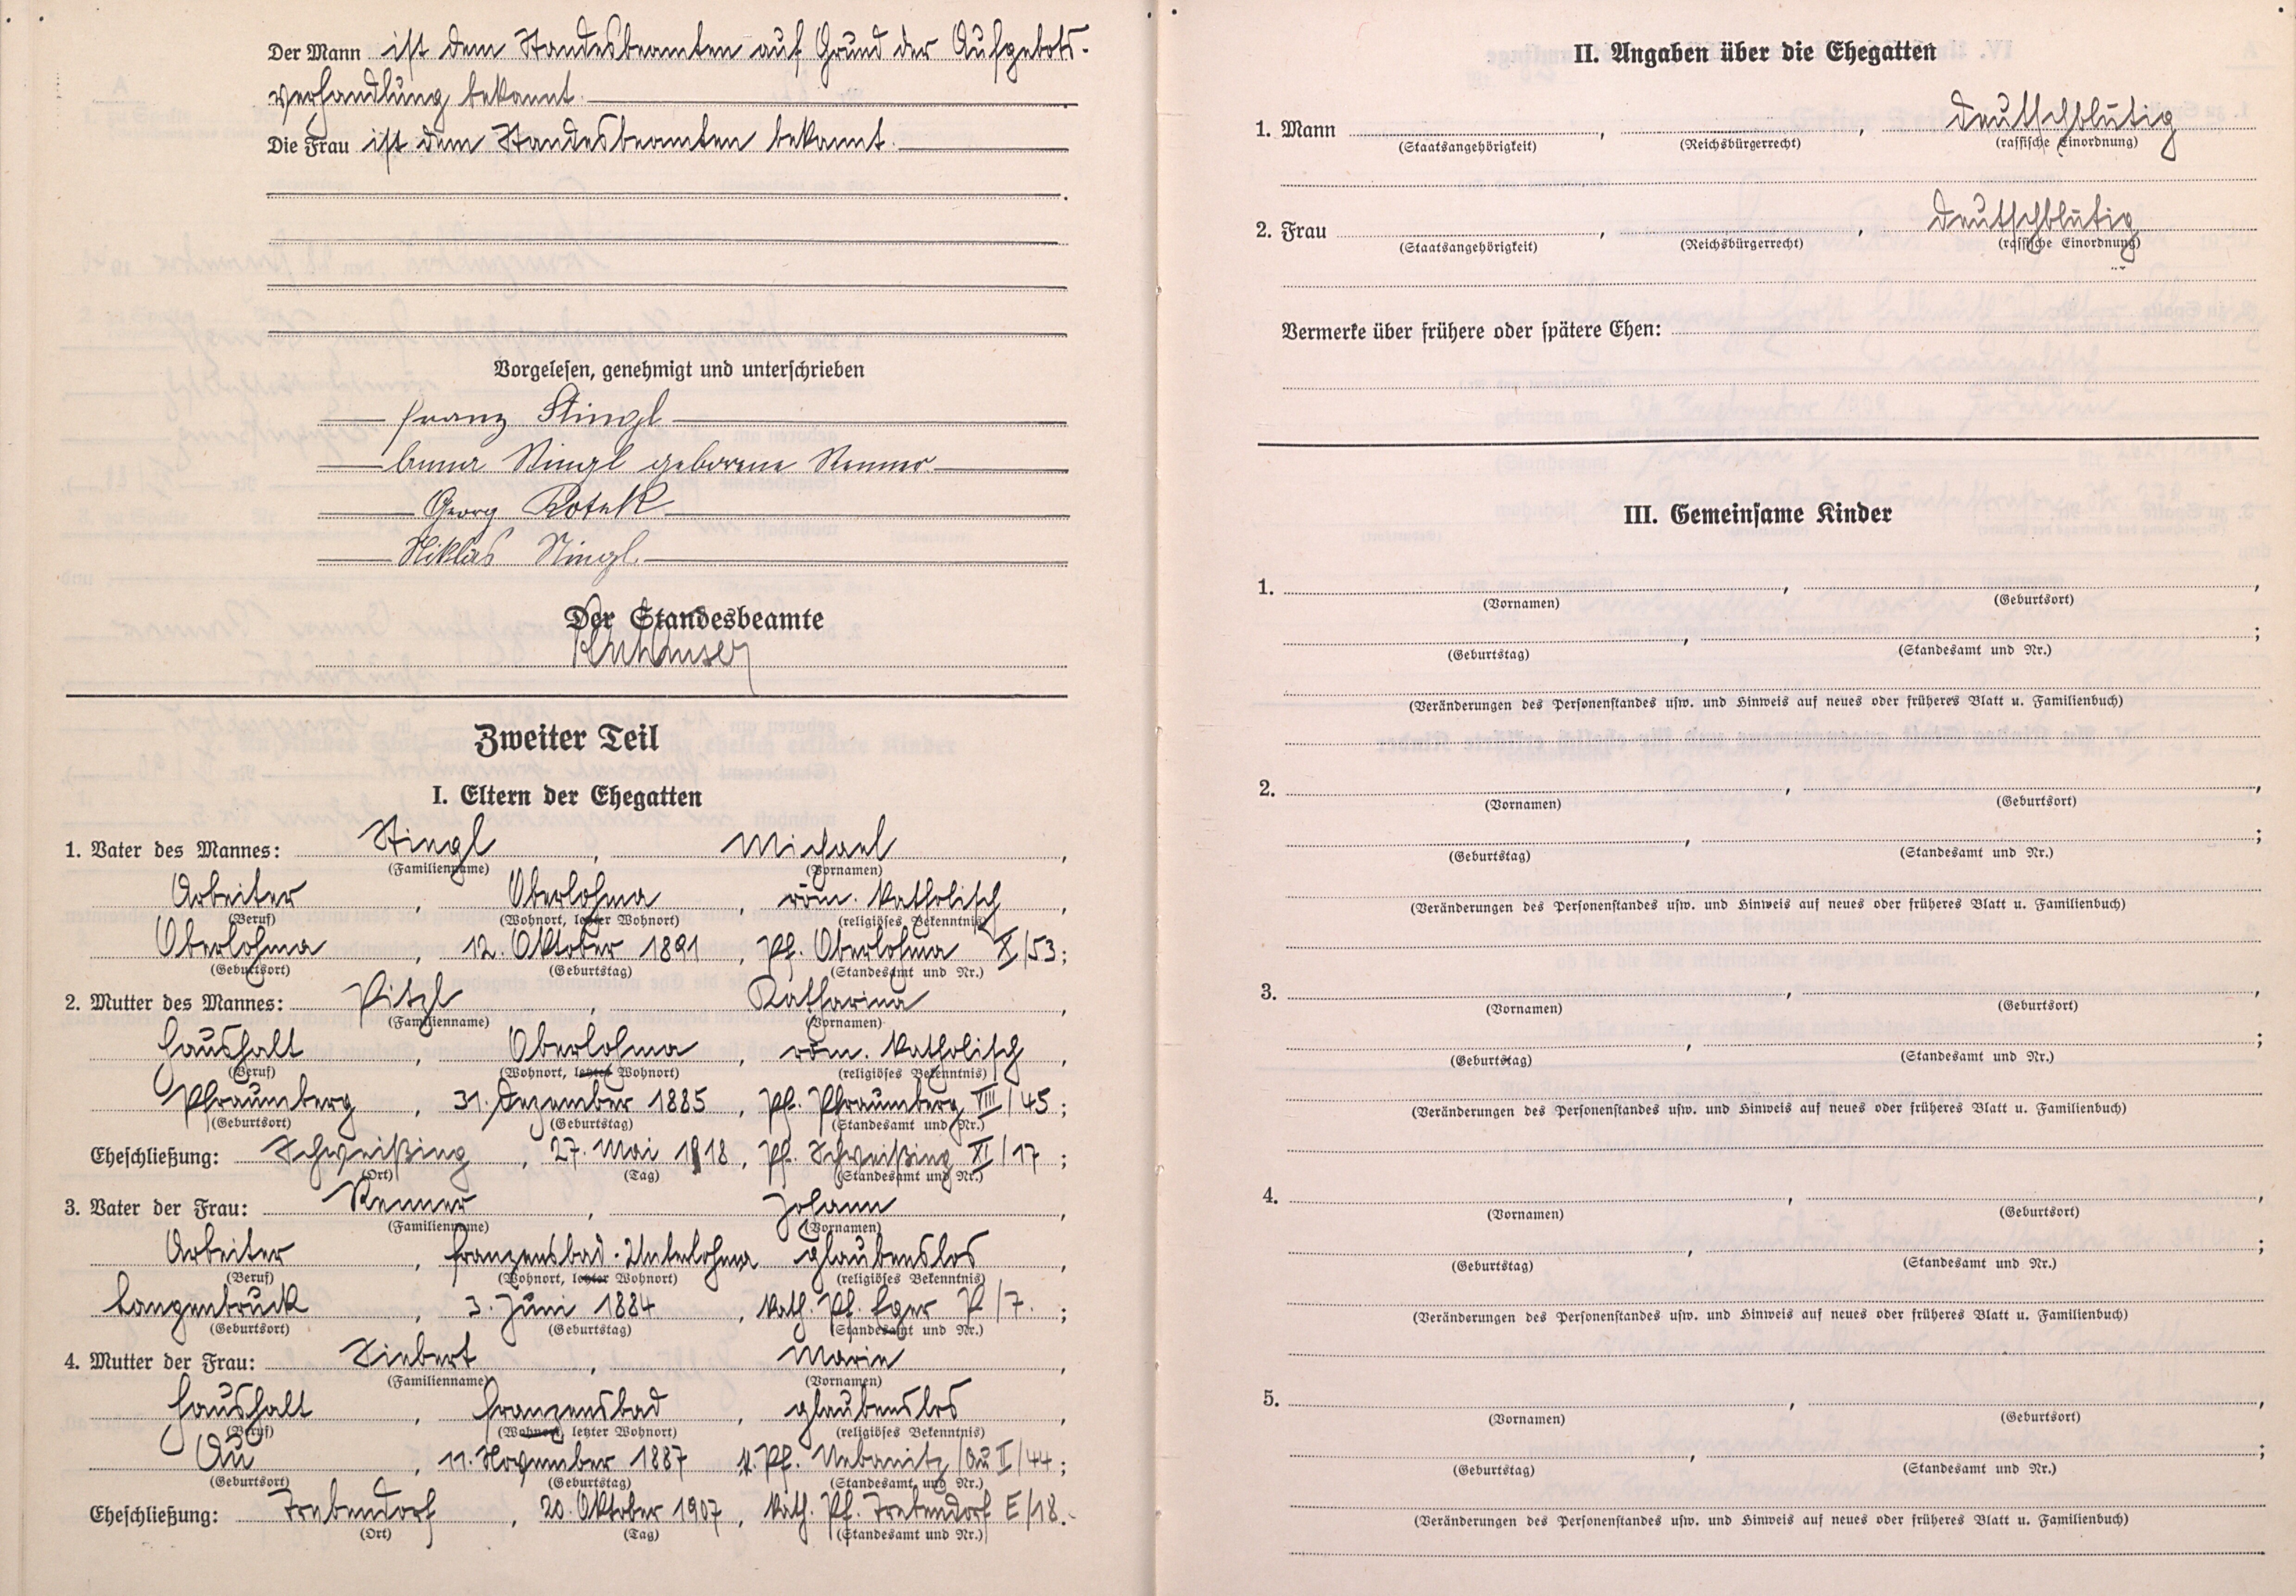 Der Mann ist dem Standesbeamten auf Grund der Aufgebots-
verhandlung bekannt.
Die Frau ist dem Standesbeamten bekannt.
Vorgelesen, genehmigt und unterschrieben
Franz Stingl
Anna Stingl geborene Renner
Georg
Niklas Stingl.
Der Standesbeamte
Zweiter Teil
I. Eltern der Ehegatten
1. Vater des Mannes: Stingl, Michael,
(Familienname) (Vornamen)
Arbeiter, Oberlohma, röm. katholisch,
(Beruf) (Wohnort, letzter Wohnort) (religiöses Bekenntnis)
Oberlohma, 12. Oktober 1891, Pf. Oberlohma X/53;
(Geburtsort) (Geburtstag) (Standesamt und Nr.)
2. Mutter des Mannes: Pitzl, Katharina,
(Familienname) (Vornamen)
Haushalt, Oberlohma, röm. katholisch,
(Beruf) (Wohnort, letzter Wohnort) (religiöses Bekenntnis)
Pfraumberg, 31. Dezember 1885, Pf. Pfraumberg VIII/45;
(Geburtsort) (Geburtstag) (Standesamt und Nr.)
Eheschließung: Schweißing, 27. Mai 1918, Pf. Schweißing XI/17;
(Ort) (Tag) (Standesamt und Nr.)
3. Vater der Frau: Renner, Johann,
(Familienname) (Vornamen)
Arbeiter, Franzensbad-Unterlohma glaubenslos,
(Beruf) (Wohnort, letzter Wohnort) (religiöses Bekenntnis)
Langenbruck, 3. Juni 1884, kath. Pf. Eger P/7.;
(Geburtsort) (Geburtstag) (Standesamt und Nr.)
4. Mutter der Frau: Siebert, Marie,
(Familienname) (Vornamen)
Haushalt, Franzensbad, glaubenslos,
(Beruf) (Wohnort, letzter Wohnort) (religiöses Bekenntnis)
Au, 11. November 1887 k. Pf. Nebanitz/Au I/44;
(Geburtsort) (Geburtstag) (Standesamt und Nr.)
Eheschließung: Trebendorf, 20. Oktober 1907, kath. Pf. Trebendorf E/18.
(Ort) (Tag) (Standesamt und Nr.)
II. Angaben über die Ehegatten
1. Mann , , deutschblütig
(Staatsangehörigkeit) (Reichsbürgerrecht) (rassische Einordnung)
2. Frau , , deutschblütig
(Staatsangehörigkeit) (Reichsbürgerrecht) (rassische Einordnung)
Vermerke über frühere oder spätere Ehen:
III. Gemeinsame Kinder
1. , ,
(Vornamen) (Geburtsort)
, ;
(Geburtstag) (Standesamt und Nr.)
(Veränderungen des Personenstandes usw. und Hinweis auf neues oder früheres Blatt u. Familienbuch)
2. , ,
(Vornamen) (Geburtsort)
, ;
(Geburtstag) (Standesamt und Nr.)
(Veränderungen des Personenstandes usw. und Hinweis auf neues oder früheres Blatt u. Familienbuch)
3. , ,
(Vornamen) (Geburtsort)
, ;
(Geburtstag) (Standesamt und Nr.)
(Veränderungen des Personenstandes usw. und Hinweis auf neues oder früheres Blatt u. Familienbuch)
4. , ,
(Vornamen) (Geburtsort)
, ;
(Geburtstag) (Standesamt und Nr.)
(Veränderungen des Personenstandes usw. und Hinweis auf neues oder früheres Blatt u. Familienbuch)
5. , ,
(Vornamen) (Geburtsort)
, ;
(Geburtstag) (Standesamt und Nr.)
(Veränderungen des Personenstandes usw. und Hinweis auf neues oder früheres Blatt u. Familienbuch)